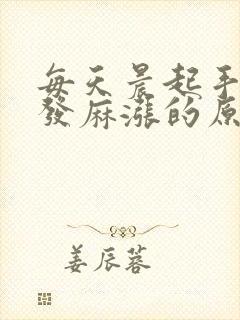 每天晨起手
發麻漲的原
姜辰蓉